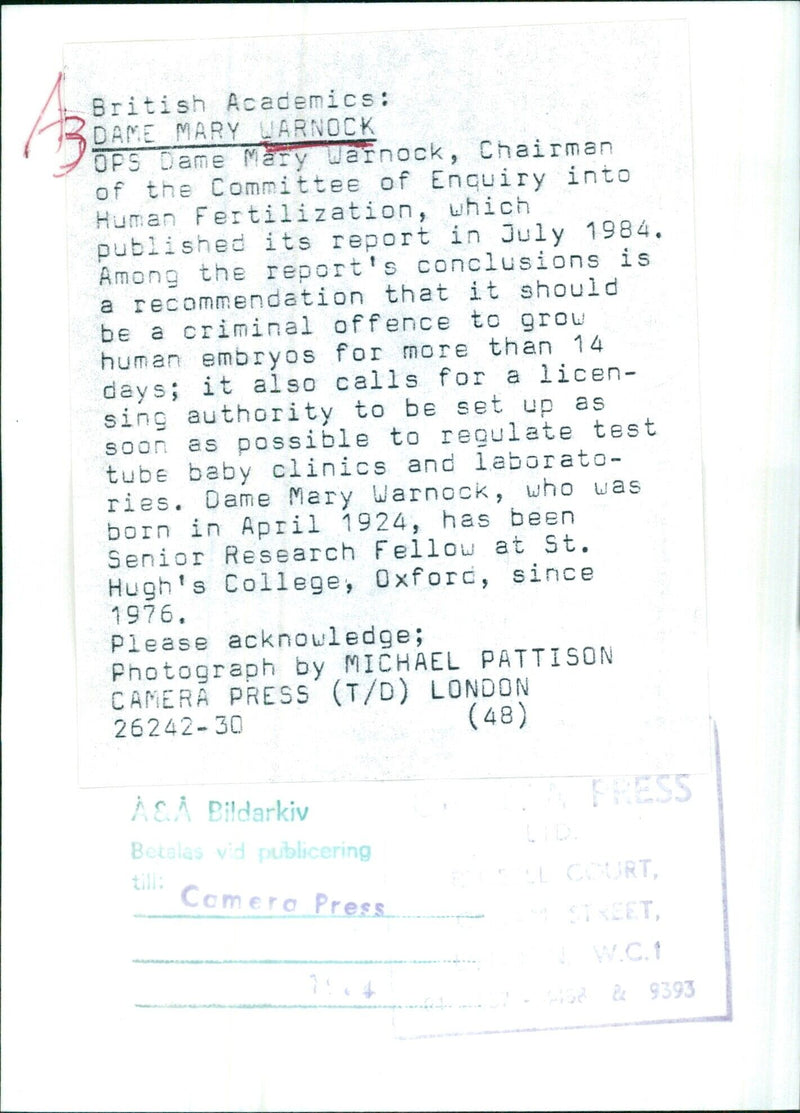 AB
British Academics:
DAME MARY WARNOCK
OPS Dame Mary Warnock, Chairman
of the Committee of Enquiry into
Human Fertilization, which
published its report in July 1984.
Among the report's conclusions is
a recommendation that it should
be a criminal offence to grow
human embryos for more than 14
days; it also calls for a licen-
sing authority to be set up as
soon as possible to regulate test
tube baby clinics and laborato-
ries. Dame Mary Warnock, who was
born in April 1924, has been
Senior Research Fellow at St.
Hugh's College, Oxford, since
1976.
Please acknowledge;
Photograph by MICHAEL PATTISON
CAMERA PRESS (T/D) LONDON
26242-30 (48)
Å&Å Bildarkiv
Betalas vid publicering
till:
Camera Press
PRESS
LTD.
COURT,
STREET,
W.C.1
& 9393